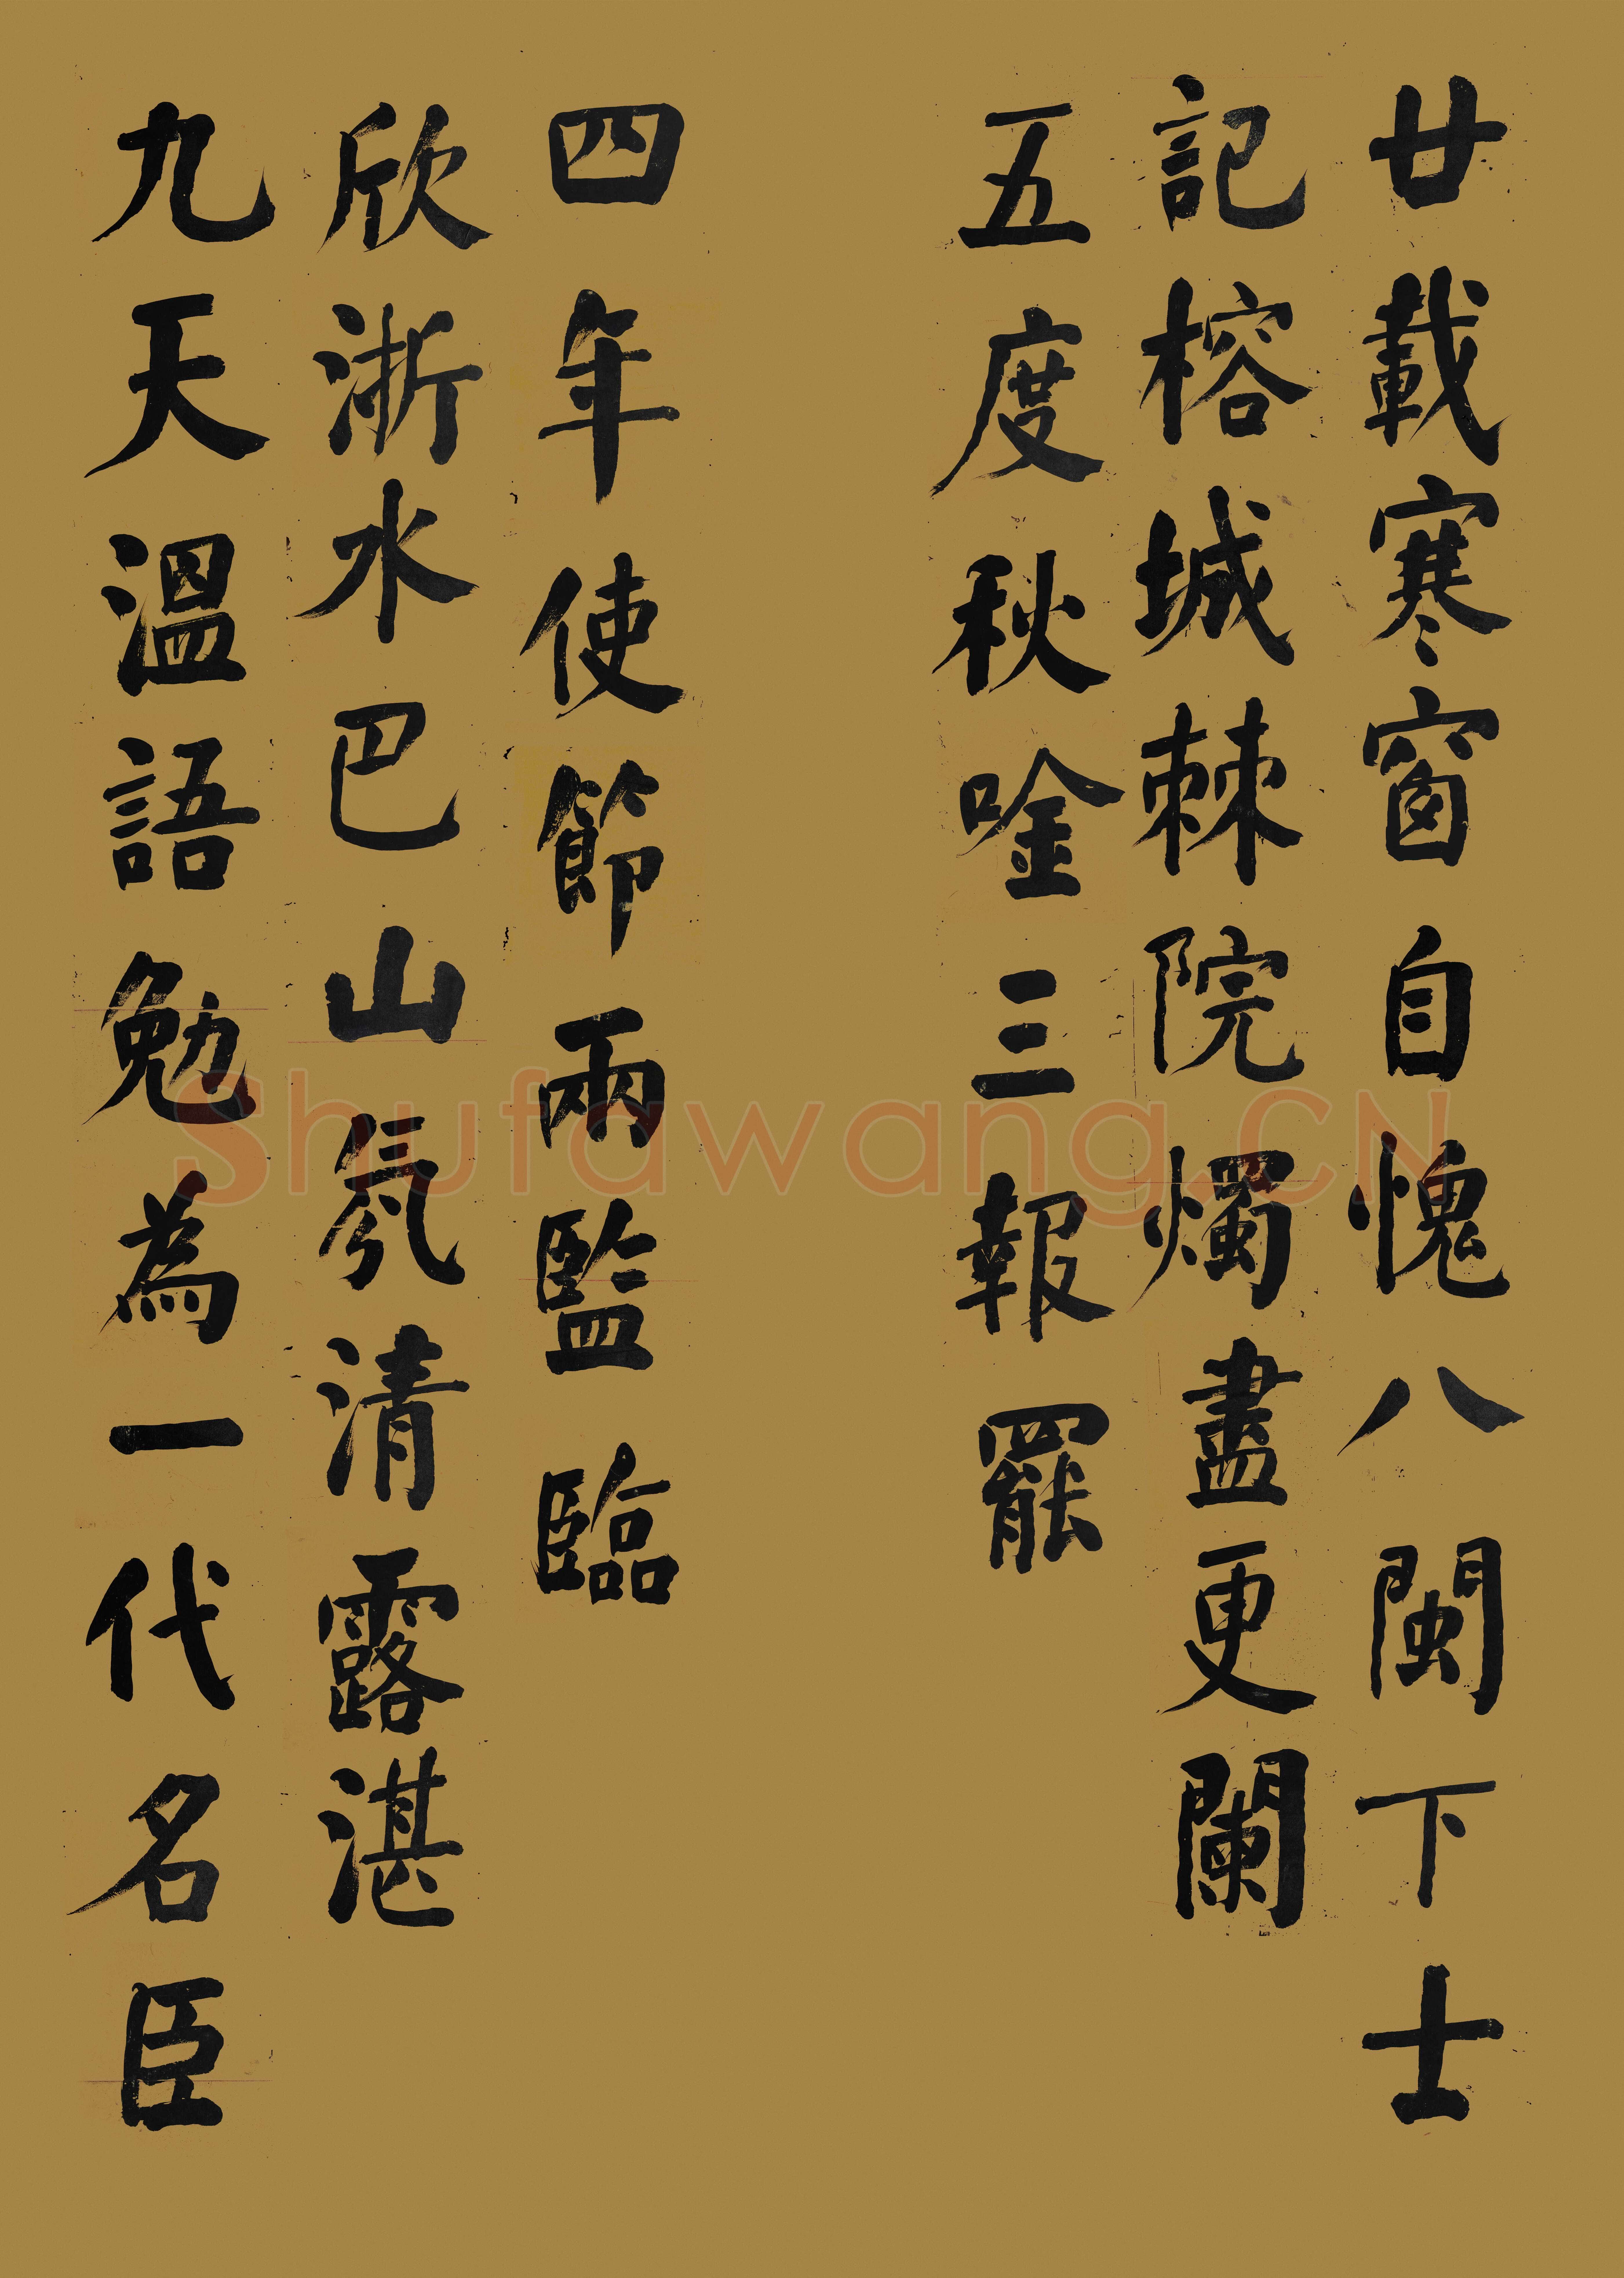 廿載寒窗自愧八閩下士
記榕城棘院燭盡更闌
五度秋唫三報罷
四年使節兩監臨
欣浙水巴山氛清露湛
九天溫語勉為一代名臣
Shufawang.CN